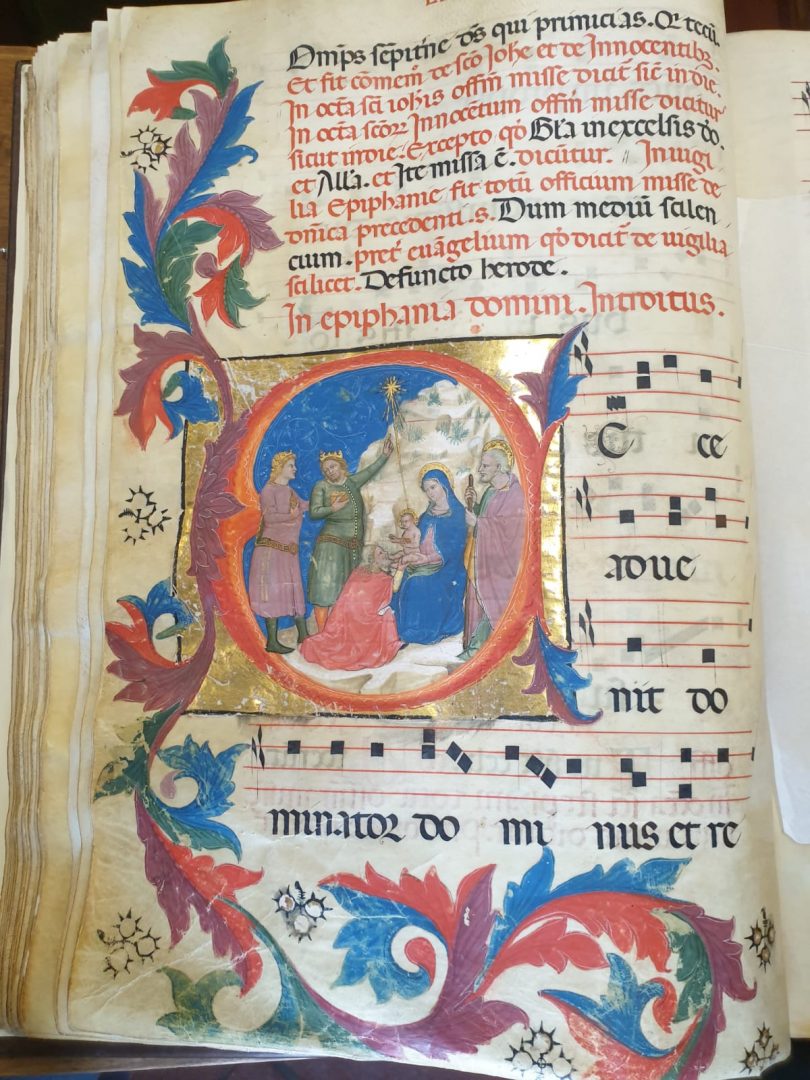 Omp̄s sep̄itne d̄s qui primicias. Or̄ tecū.
Et fit cōmem̄ de scō Johe et de Innocentibꝫ.
In octa sci iohis offin̄ misse dicit̄ sic̄ in die.
In octa scoꝝ Innocentum offin̄ misse dicitur
sicut in die. Excepto qo Gl̄a in excelsis d̄o.
et All̄a. et Ite missa ē. dicūtur. In uigi
lia Epiphanie fit totū officium misse de
dn̄ica precedenti .s. Dum mediū silen
cium. pret̄ euāgelium qo dicit̄ de uigilia
scilicet. Defuncto herode.
In epiphania domini. Introitus.
E C ce
adue
nit do
minator do mi nus et re